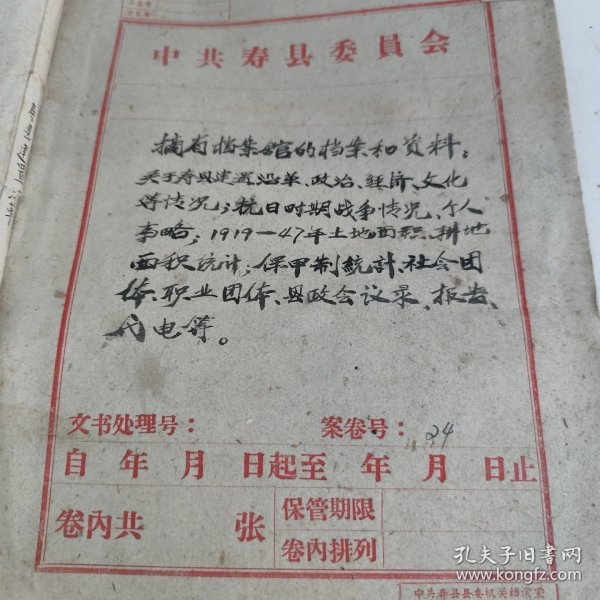 中共寿县委員会
摘有档案館的档案和资料：
关于寿县建置沿革、政治、经济、文化
等情况；抗日时期战争情况、个人
事略；1919—47年土地面积、耕地
面积统计；保甲制統計、社会团
体、职业团体、县政会议录、报告、
代电等。
文书处理号： 案卷号： 24
自 年 月 日起至 年 月 日止
卷內共 张 保管期限
卷內排列
中共寿县县委机关档案室
孔夫子旧书网
www.kongfz.com